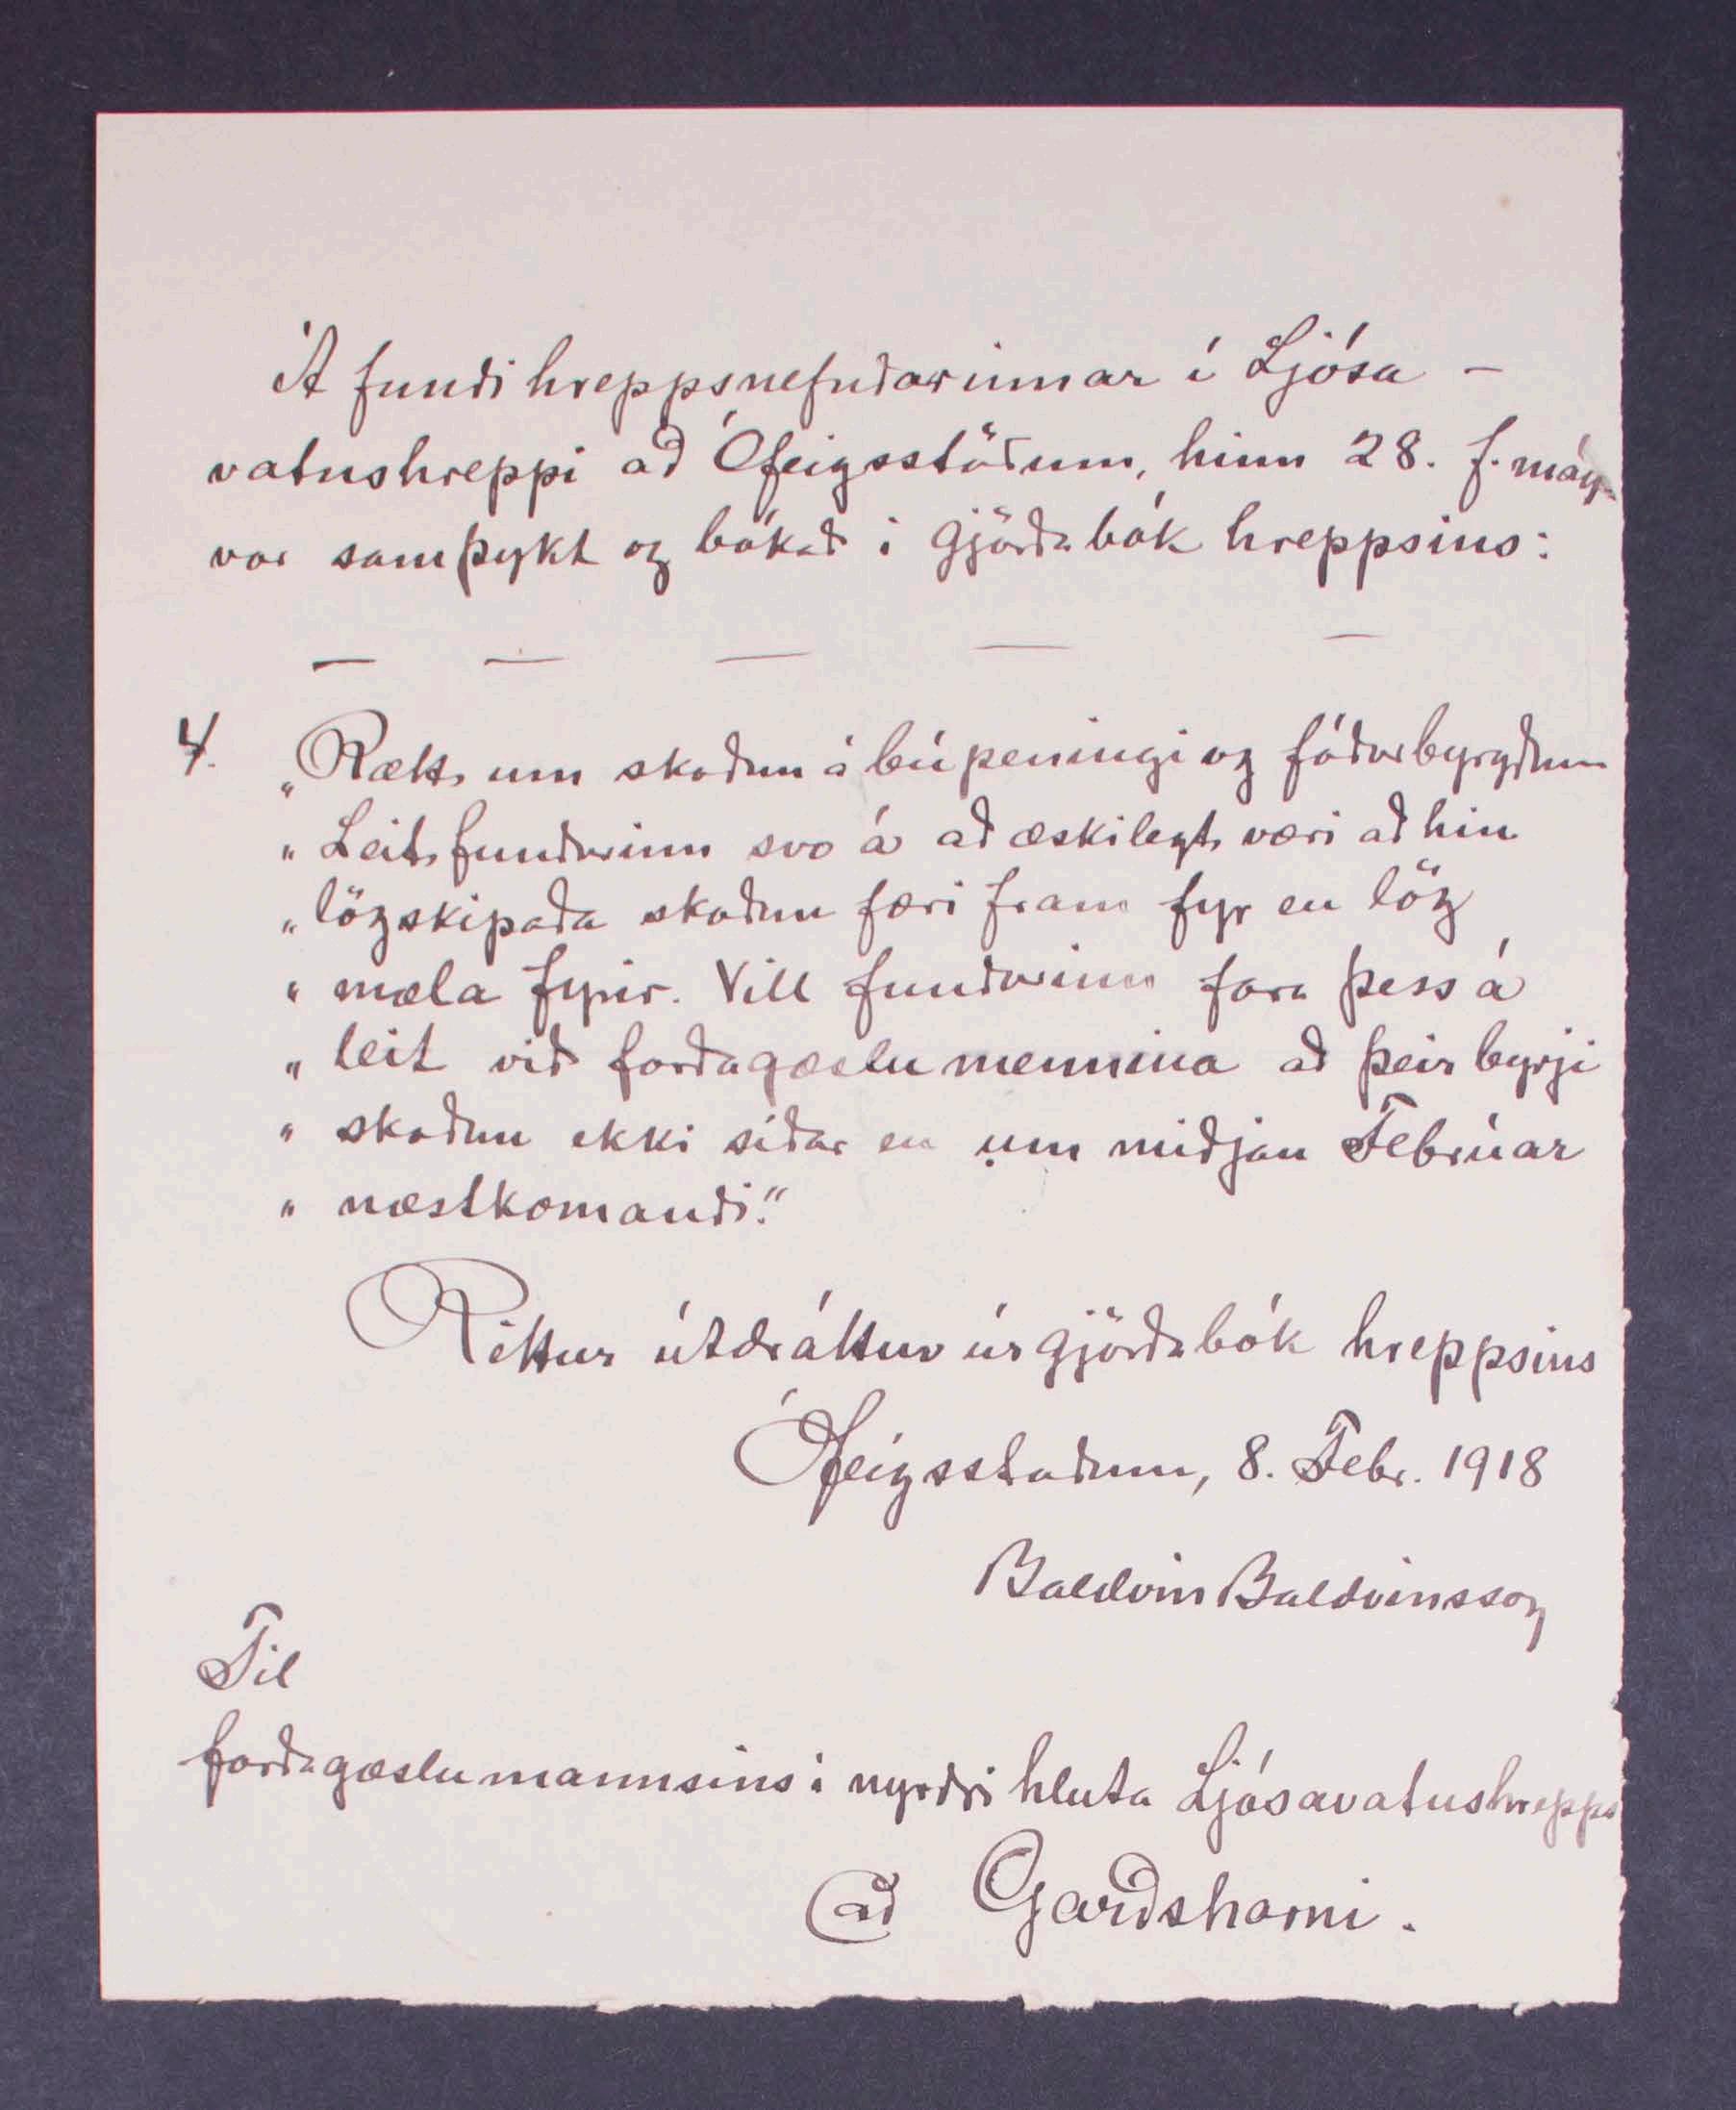 Á fundi hreppsnefndarinnar í Ljósa -
vatnshreppi að Ófeigsstöðum, hinn 28. f. mán.
var samþykt og bókað í gjörðabók hreppsins:
— — — — —
4. „Rætt um skoðun á búpeningi og fóðurbyrgðum
„ Leit fundurinn svo á að æskilegt væri að hin
„ lögskipaða skoðun færi fram fyr en lög
„ mæla fyrir. Vill fundurinn fara þess á
„ leit við forðagæslumennina að þeir byrji
„ skoðun ekki síðar en um miðjan Febrúar
„ næstkomandi."
Rjettur útdráttur úr gjörðabók hreppsins
Ófeigsstaðum, 8. Febr. 1918
Baldvin Baldvinsson
Til
forðagæslumannsins í nyrðri hluta Ljósavatnshrepps
að Garðshorni.